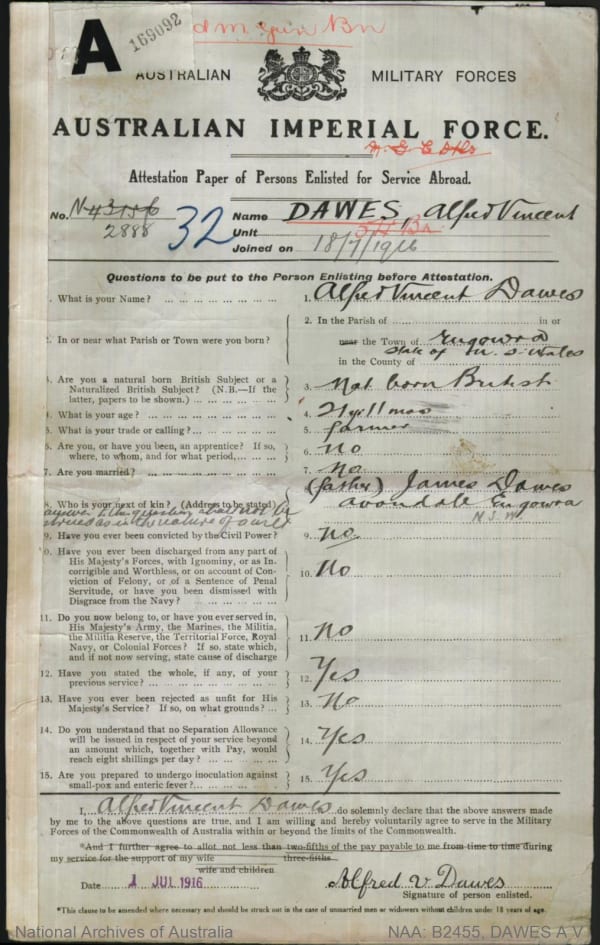 A
169092
AUSTRALIAN MILITARY FORCES
AUSTRALIAN IMPERIAL FORCE.
Attestation Paper of Persons Enlisted for Service Abroad.
No. N43156
2888
32
Name DAWES, Alfred Vincent
Unit
Joined on 18/7/1916
Questions to be put to the Person Enlisting before Attestation.
1. What is your Name? 1. Alfred Vincent Dawes
2. In or near what Parish or Town were you born? 2. In the Parish of in or
near the Town of Eugowra
State of N. S. Wales
in the County of
3. Are you a natural born British Subject or a
Naturalized British Subject? (N.B.—If the
latter, papers to be shown.) 3. Nat born British
4. What is your age? 4. 21 y 11 mos
5. What is your trade or calling? 5. farmer
6. Are you, or have you been, an apprentice? If so,
where, to whom, and for what period, 6. no
7. Are you married? 7. No
8. Who is your next of kin? (Address to be stated) (father) James Dawes
Avondale Eugowra
N.S.W.
answer to the question shall not be
construed as in the nature of a will
9. Have you ever been convicted by the Civil Power? 9. no
10. Have you ever been discharged from any part of
His Majesty's Forces, with Ignominy, or as In-
corrigible and Worthless, or on account of Con-
viction of Felony, or of a Sentence of Penal
Servitude, or have you been dismissed with
Disgrace from the Navy? 10. No
11. Do you now belong to, or have you ever served in,
His Majesty's Army, the Marines, the Militia,
the Militia Reserve, the Territorial Force, Royal
Navy, or Colonial Forces? If so, state which,
and if not now serving, state cause of discharge 11. No
12. Have you stated the whole, if any, of your
previous service? 12. Yes
13. Have you ever been rejected as unfit for His
Majesty's Service? If so, on what grounds? 13. No
14. Do you understand that no Separation Allowance
will be issued in respect of your service beyond
an amount which, together with Pay, would
reach eight shillings per day? 14. Yes
15. Are you prepared to undergo inoculation against
small-pox and enteric fever? 15. Yes
I, Alfred Vincent Dawes do solemnly declare that the above answers made
by me to the above questions are true, and I am willing and hereby voluntarily agree to serve in the Military
Forces of the Commonwealth of Australia within or beyond the limits of the Commonwealth.
*And I further agree to allot not less than two-fifths of the pay payable to me from time to time during
my service for the support of my wife three-fifths
wife and children
Date 1 JUL 1916 Alfred V Dawes
Signature of person enlisted.
*This clause to be amended where necessary and should be struck out in the case of unmarried men or widowers without children under 18 years of age.
National Archives of Australia NAA: B2455, DAWES A V